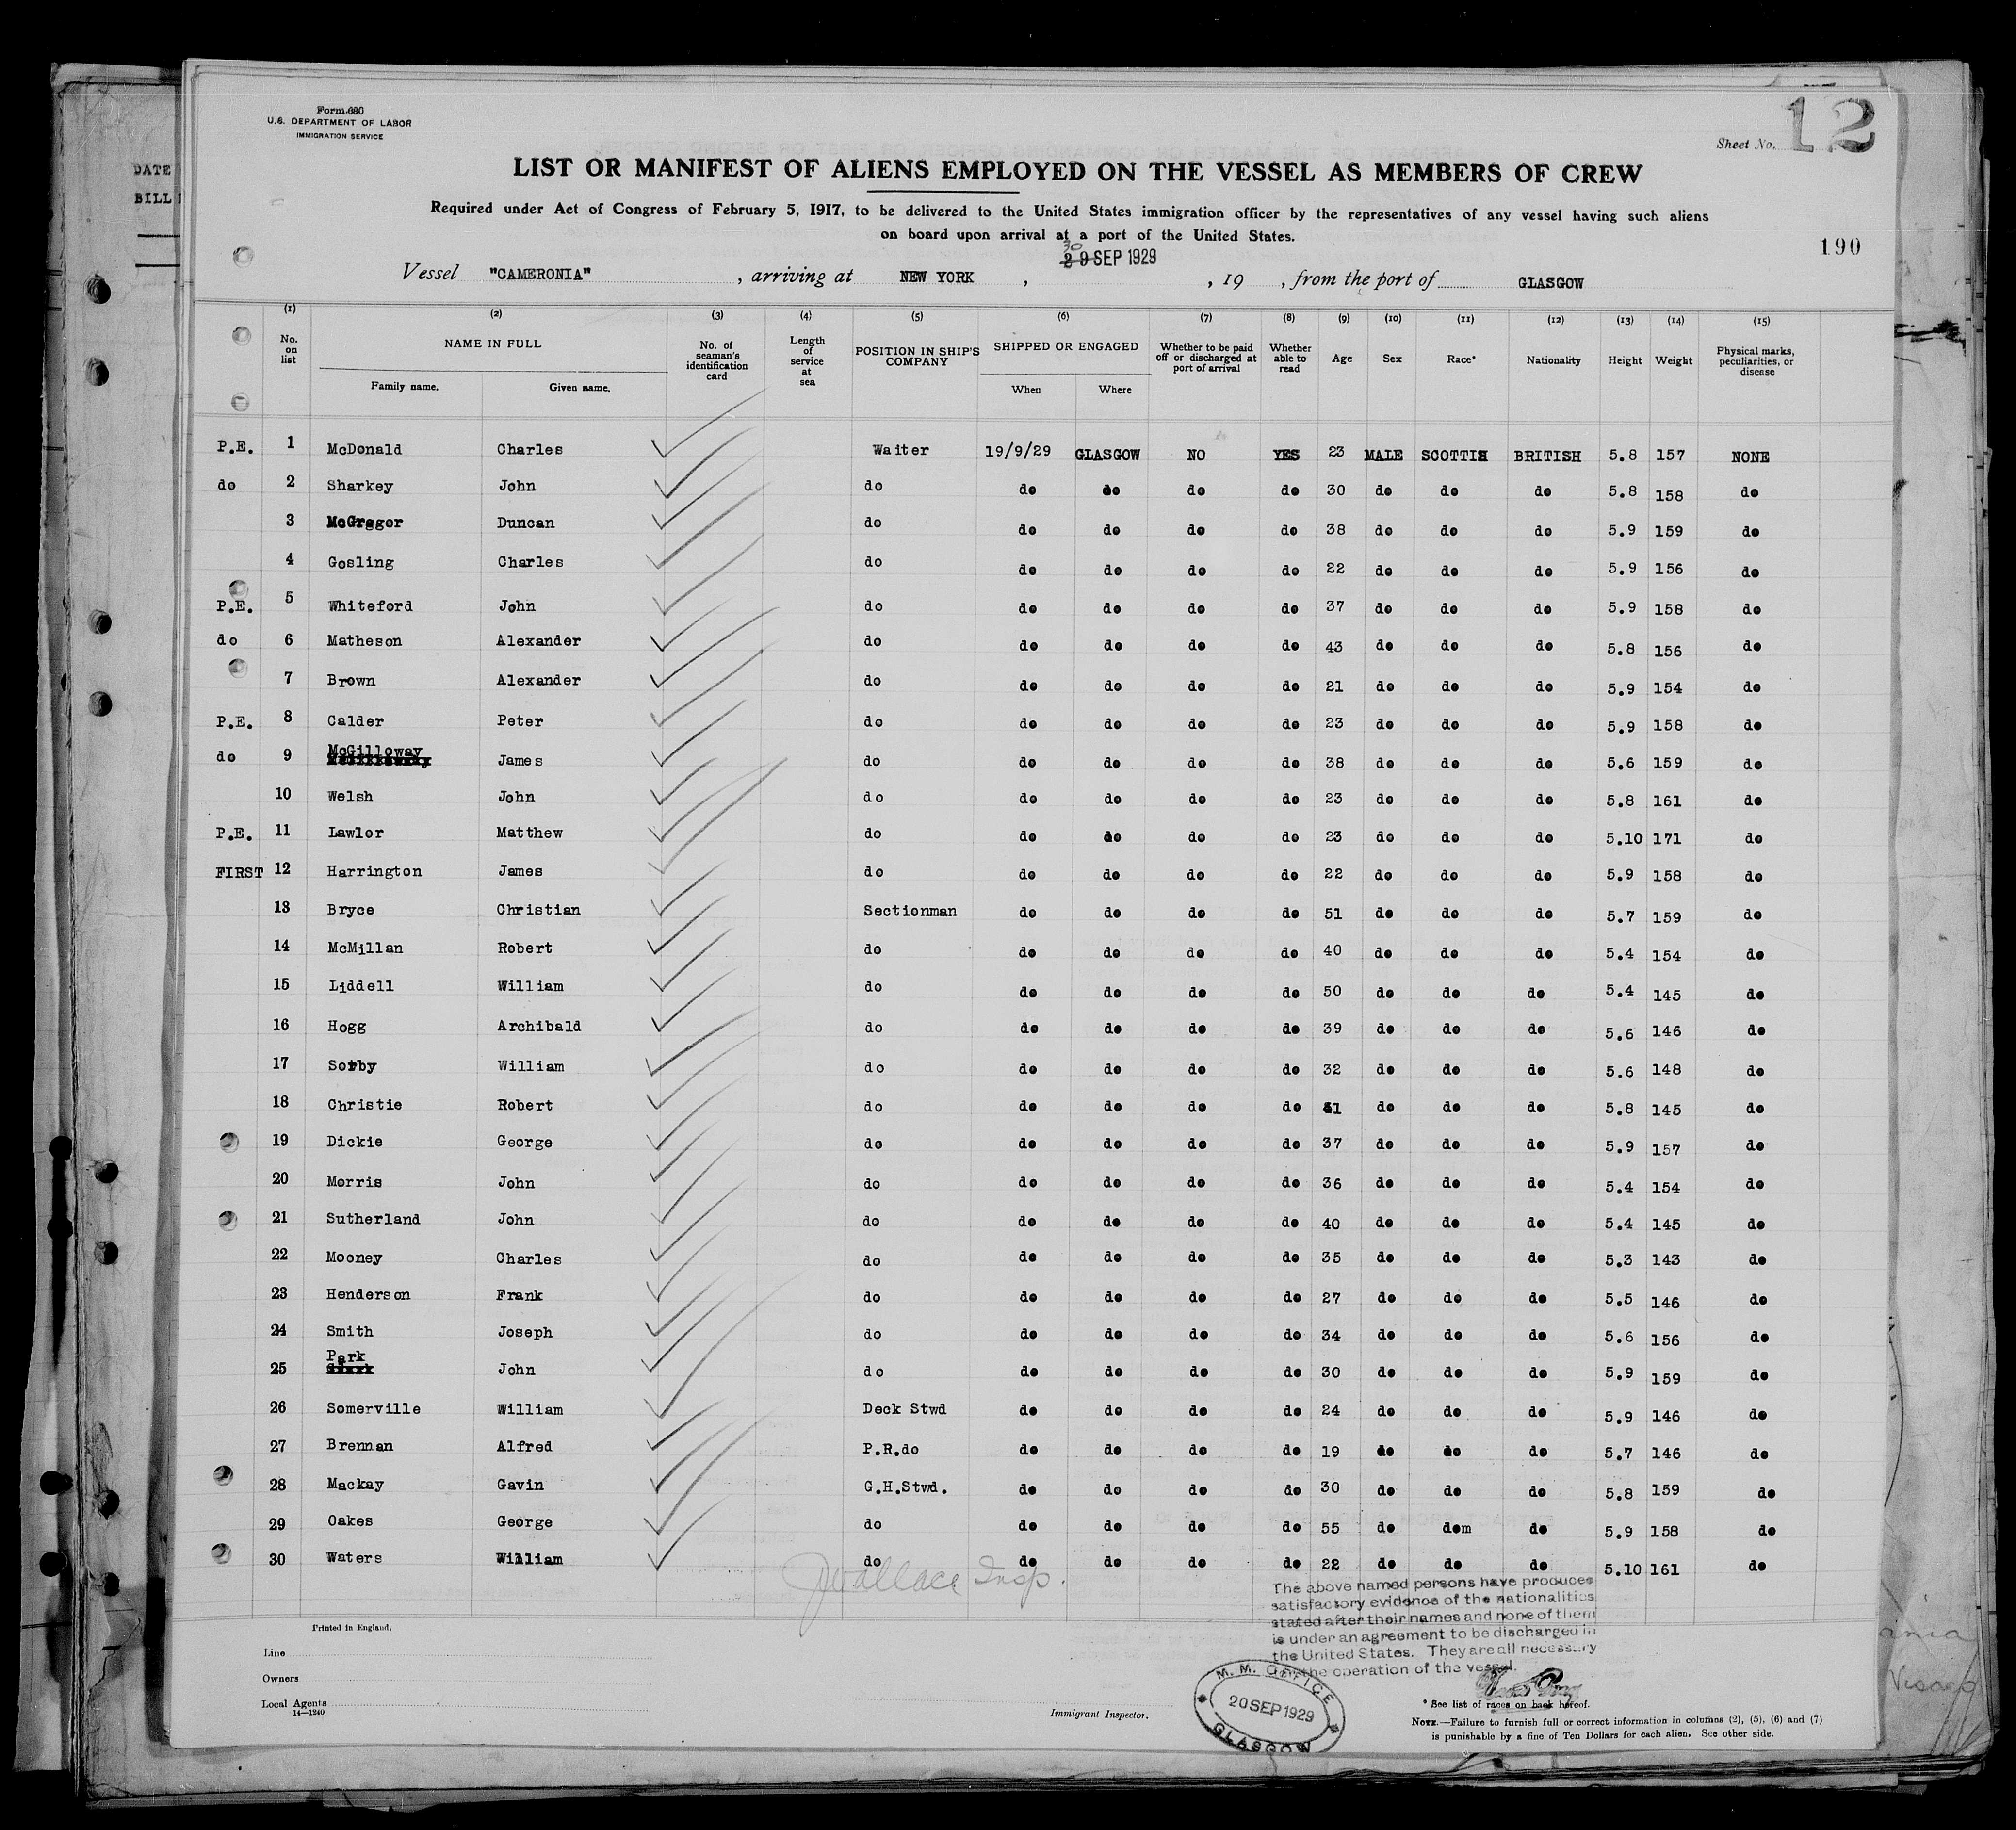 DATE
BILL
Form 680
U.S. DEPARTMENT OF LABOR
IMMIGRATION SERVICE
Sheet No. 12
LIST OR MANIFEST OF ALIENS EMPLOYED ON THE VESSEL AS MEMBERS OF CREW
Required under Act of Congress of February 5, 1917, to be delivered to the United States immigration officer by the representatives of any vessel having such aliens
on board upon arrival at a port of the United States.
190
30
29 SEP 1929
Vessel "CAMERONIA", arriving at NEW YORK, , 19 , from the port of GLASGOW
(1) (2) (3) (4) (5) (6) (7) (8) (9) (10) (11) (12) (13) (14) (15)
No. on list NAME IN FULL No. of seaman's identification card Length of service at sea POSITION IN SHIP'S COMPANY SHIPPED OR ENGAGED Whether to be paid off or discharged at port of arrival Whether able to read Age Sex Race* Nationality Height Weight Physical marks, peculiarities, or disease
Family name. Given name. When Where
P.E. 1 McDonald Charles Waiter 19/9/29 GLASGOW NO YES 23 MALE SCOTTISH BRITISH 5.8 157 NONE
do 2 Sharkey John do do do do do 30 do do do 5.8 158 do
3 McGregor Duncan do do do do do 38 do do do 5.9 159 do
4 Gosling Charles do do do do do 22 do do do 5.9 156 do
P.E. 5 Whiteford John do do do do do 37 do do do 5.9 158 do
do 6 Matheson Alexander do do do do do 43 do do do 5.8 156 do
7 Brown Alexander do do do do do 21 do do do 5.9 154 do
P.E. 8 Calder Peter do do do do do 23 do do do 5.9 158 do
do 9 McGilloway James do do do do do 38 do do do 5.6 159 do
10 Welsh John do do do do do 23 do do do 5.8 161 do
P.E. 11 Lawlor Matthew do do do do do 23 do do do 5.10 171 do
FIRST 12 Harrington James do do do do do 22 do do do 5.9 158 do
13 Bryce Christian Sectionman do do do do 51 do do do 5.7 159 do
14 McMillan Robert do do do do do 40 do do do 5.4 154 do
15 Liddell William do do do do do 50 do do do 5.4 145 do
16 Hogg Archibald do do do do do 39 do do do 5.6 146 do
17 Sorby William do do do do do 32 do do do 5.6 148 do
18 Christie Robert do do do do do do do do 5.8 145 do
19 Dickie George do do do do do 37 do do do 5.9 157 do
20 Morris John do do do do do 36 do do do 5.4 154 do
21 Sutherland John do do do do do 40 do do do 5.4 145 do
22 Mooney Charles do do do do do 35 do do do 5.3 143 do
23 Henderson Frank do do do do do 27 do do do 5.5 146 do
24 Smith Joseph do do do do do 34 do do do 5.6 156 do
25 Park John do do do do do 30 do do do 5.9 159 do
26 Somerville William Deck Stwd do do do do 24 do do do 5.9 146 do
27 Brennan Alfred P.R.do do do do do 19 do do do 5.7 146 do
28 Mackay Gavin G.H.Stwd. do do do do 30 do do do 5.8 159 do
29 Oakes George do do do do do 55 do dom do 5.9 158 do
30 Waters William do do do do do 22 do do do 5.10 161 do
JWallace Insp.
The above named persons have produced
satisfactory evidence of the nationalities
stated after their names and none of them
is under an agreement to be discharged in
the United States. They are all necessary
for the operation of the vessel.
Printed in England.
Line
Owners
Local Agents
14—1240
Immigrant Inspector.
M. M. OFFICE
20 SEP 1929
GLASGOW
* See list of races on back hereof.
NOTE.—Failure to furnish full or correct information in columns (2), (5), (6) and (7)
is punishable by a fine of Ten Dollars for each alien. See other side.